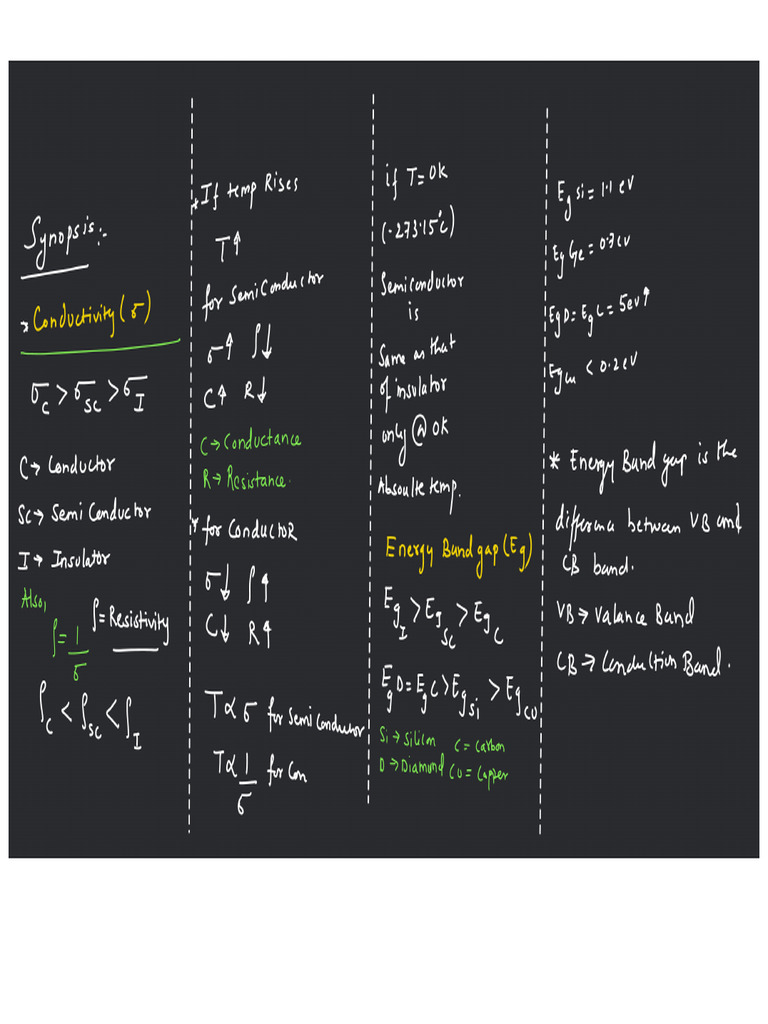 Synopsis:-
* Conductivity (σ)
σ_C > σ_SC > σ_I
C → Conductor
SC → Semi Conductor
I → Insulator
Also,
ρ = 1/σ
ρ = Resistivity
ρ_C < ρ_SC < ρ_I
* If temp Rises
T↑
for SemiConductor
σ↑ ρ↓
C↑ R↓
C → Conductance
R → Resistance.
* for ConductoR
σ↓ ρ↑
C↓ R↑
T ∝ σ for Semi Conductor
T ∝ 1/σ for Con
if T = 0K
(-273.15°C)
Semiconductor
is
Same as that
of insulator
only @ 0K
Absoulte temp.
Energy Band gap (Eg)
Eg_I > Eg_SC > Eg_C
Eg D = Eg C > Eg_Si > Eg_CU
Si → Silicon C = Carbon
D → Diamond CU = Copper
Eg Si = 1.1 eV
Eg Ge = 0.7 eV
Eg D = Eg C = 5eV↑
Eg_Cu < 0.2 eV
* Energy Band gap is the
difference between VB and
CB band.
VB → Valance Band
CB → Conduction Band.